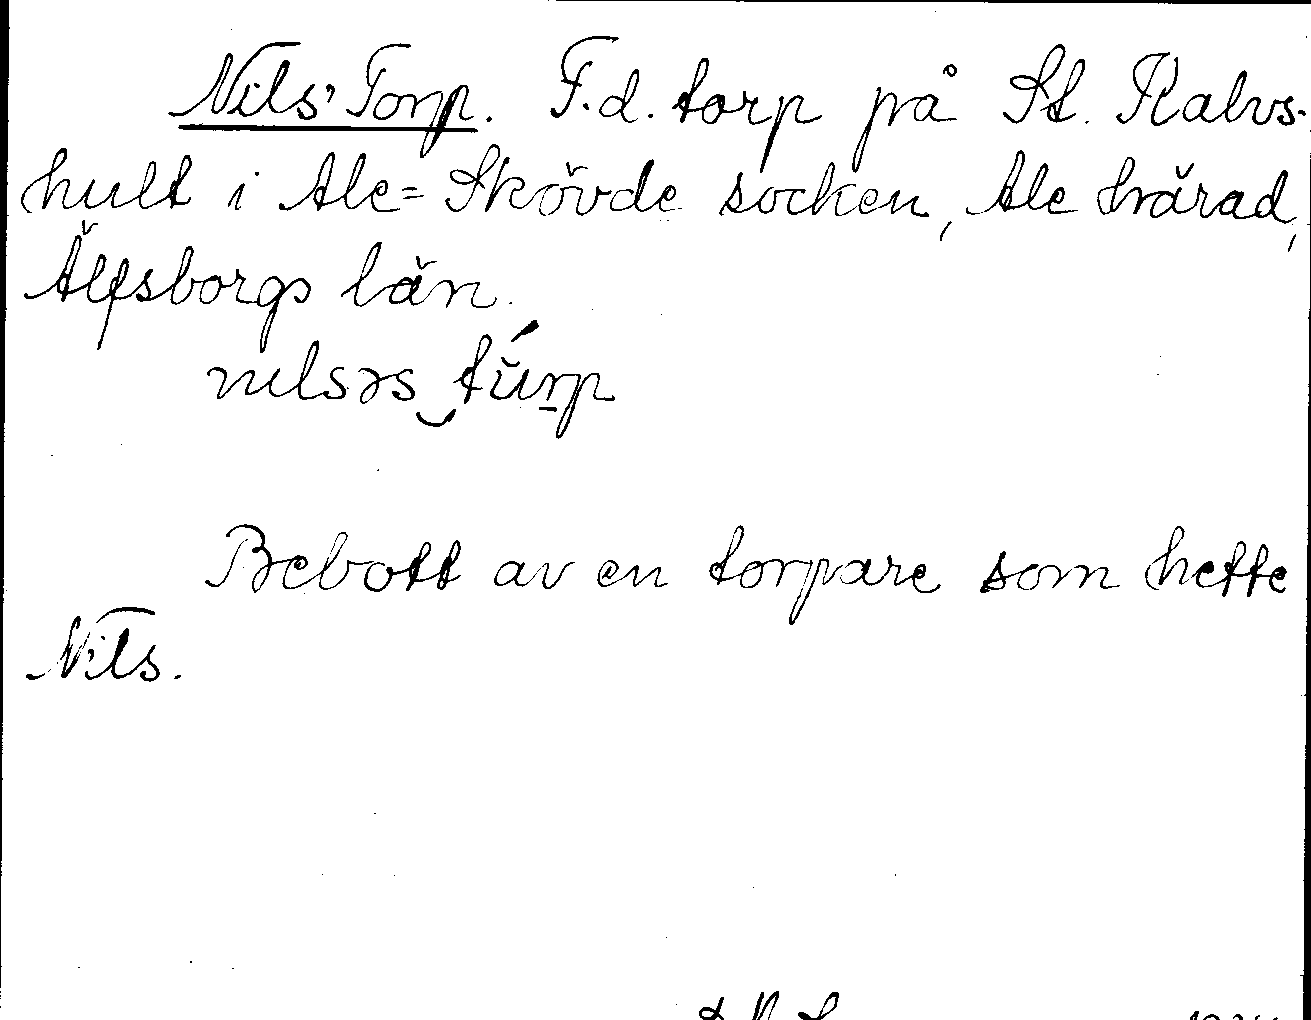 Nils' Torp. F.d. torp på St. Kalvs-
hult i Ale=Skövde socken, Ale härad,
Älfsborgs län.
nilsəs tŭ́rp
Bebott av en torpare som hette
Nils.